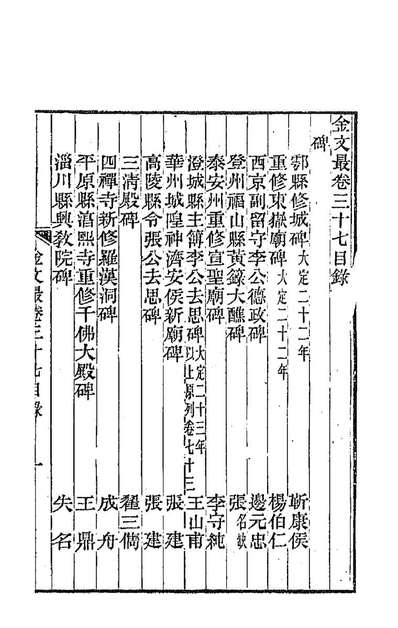 金文最卷三十七目錄
碑
鄠縣修城碑 大定二十二年 靳康侯
重修東嶽廟碑 大定二十二年 楊伯仁
西京副留守李公德政碑 邊元忠
登州福山縣黃籙大醮碑 張名缺
泰安州重修宣聖廟碑 李守純
澄城縣主簿李公去思碑 大定二十三年以上原列卷七十三 王山甫
華州城隍神濟安侯新廟碑 張建
高陵縣令張公去思碑 張建
三清殿碑 翟三儔
四禪寺新修羅漢洞碑 成舟
平原縣淯熙寺重修千佛大殿碑 王鼎
淄川縣興教院碑 失名
金文最卷三十七目錄 一